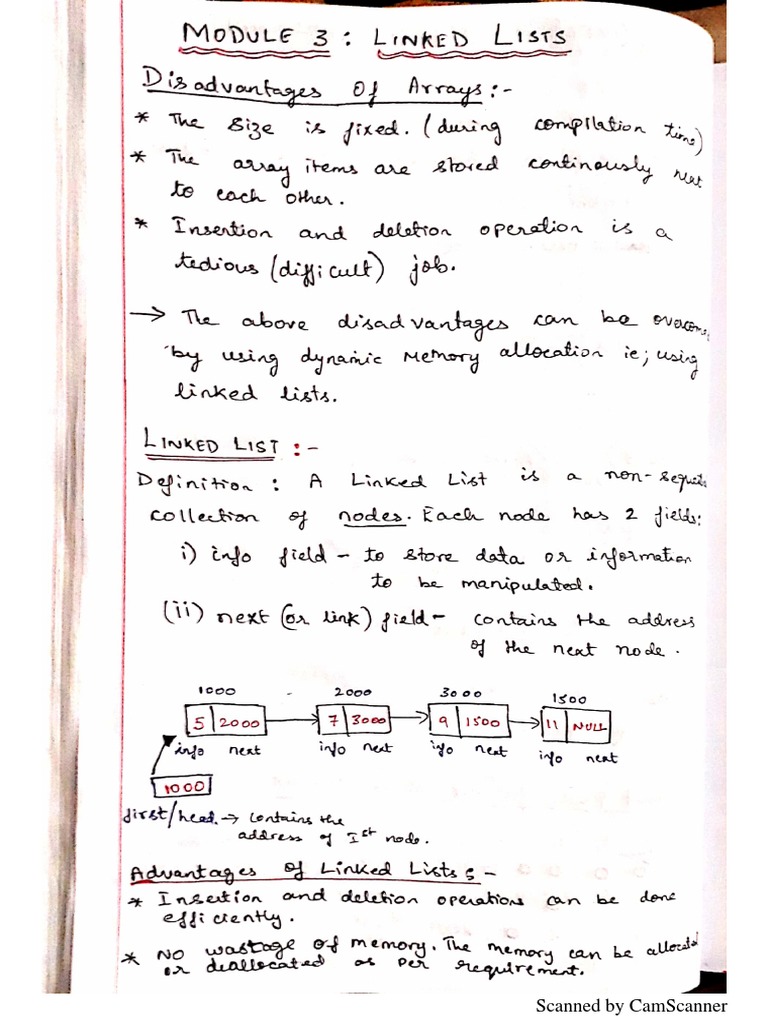 MODULE 3 : LINKED LISTS
Disadvantages Of Arrays :-
* The Size is fixed. (during compilation time)
* The array items are stored continously next
to each other.
* Insertion and deletion operation is a
tedious (difficult) job.
→ The above disadvantages can be overcome
by using dynamic memory allocation ie; using
linked lists.
LINKED LIST :-
Definition : A Linked List is a non-
collection of nodes. Each node has 2 fields:
i) info field - to store data or information
to be manipulated.
(ii) next (or link) field - contains the address
of the next node.
1000 2000 3000 1500
5 2000 7 3000 9 1500 11 NULL
info next info next info next info next
1000
first/head → contains the
address of Ist node.
Advantages of Linked Lists :-
* Insertion and deletion operations can be done
efficiently.
* No wastage of memory. The memory can be allocated
or deallocated as per requirement.
Scanned by CamScanner